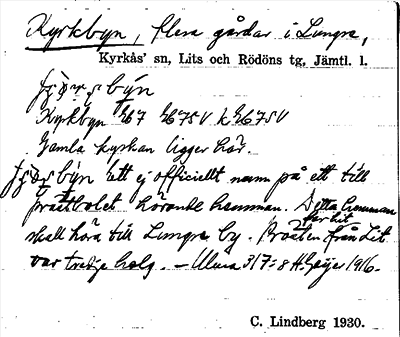 Kyrkbyn, flera gårdar i Lungre,
Kyrkås' sn, Lits och Rödöns tg, Jämtl. l.
Kyrkbyn
Gamla kyrkan ligger här.
Ett ej officiellt namn på ett till
prästbolet hörande hemman. Detta hemman
skall höra till Lungre by. Prosten far hit från Lit
var tredje helg. – Ulvra 3/7:8 H. Geijer 1916.
C. Lindberg 1930.